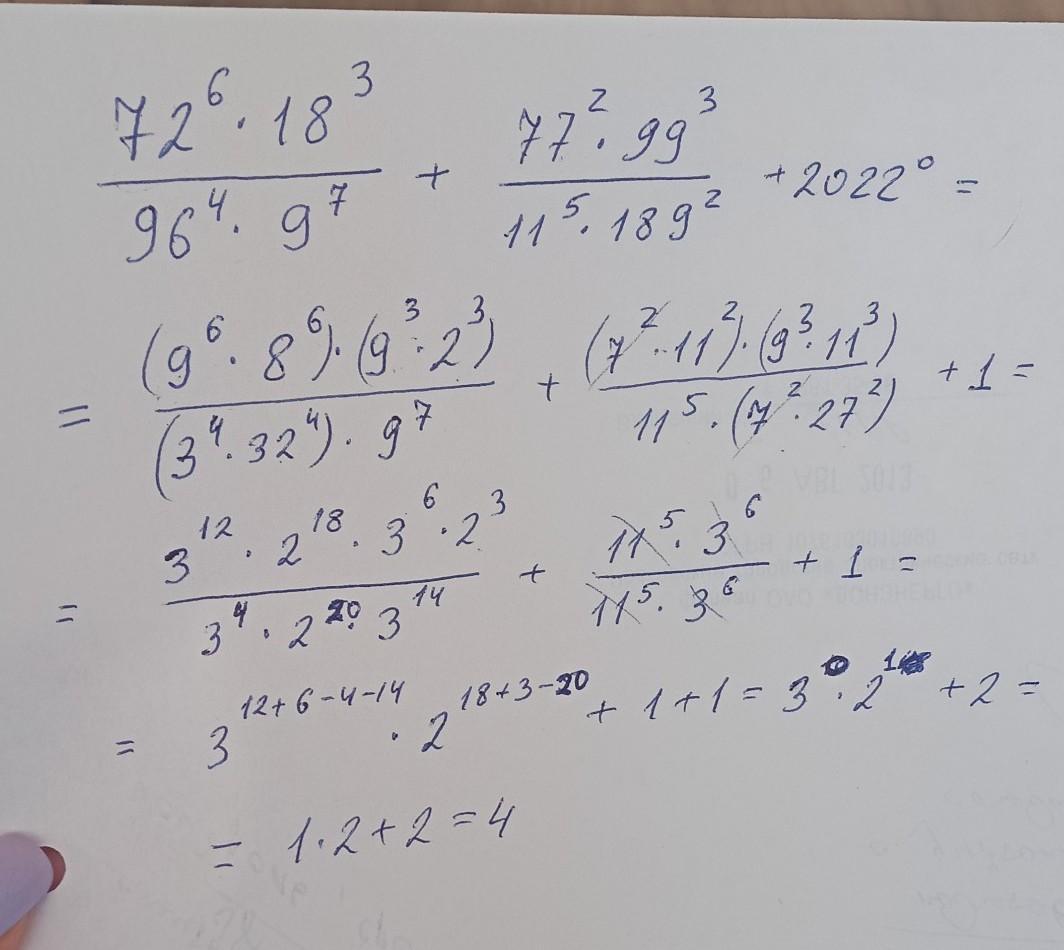 72⁶ · 18³ / 96⁴ · 9⁷ + 77² · 99³ / 11⁵ · 189² + 2022⁰ =
= (9⁶ · 8⁶) · (9³ · 2³) / (3⁴ · 32⁴) · 9⁷ + (7² · 11²) · (9³ · 11³) / 11⁵ · (7² · 27²) + 1 =
= 3¹² · 2¹⁸ · 3⁶ · 2³ / 3⁴ · 2²⁰ · 3¹⁴ + 11⁵ · 3⁶ / 11⁵ · 3⁶ + 1 =
= 3¹²⁺⁶⁻⁴⁻¹⁴ · 2¹⁸⁺³⁻²⁰ + 1 + 1 = 3⁰ · 2¹ + 2 =
= 1 · 2 + 2 = 4